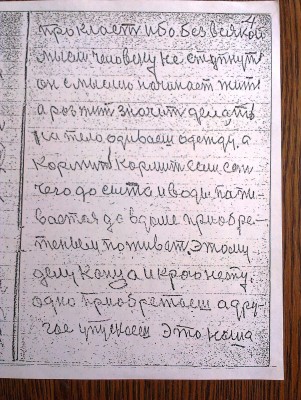 4
про класть ибо. без всякой
мысли человеку не ступнуть
он с мыслию начинает жить
а рожит значит делать
на тело одиваеш одежду, а
кормит кормит сам сем
чего до сыта и воды. напи-
вается да вдоме приобре-
тением поживет. Этому
делу конца и краю нету.
одно приобретаеш а дру-
гое упускаеш Это наша